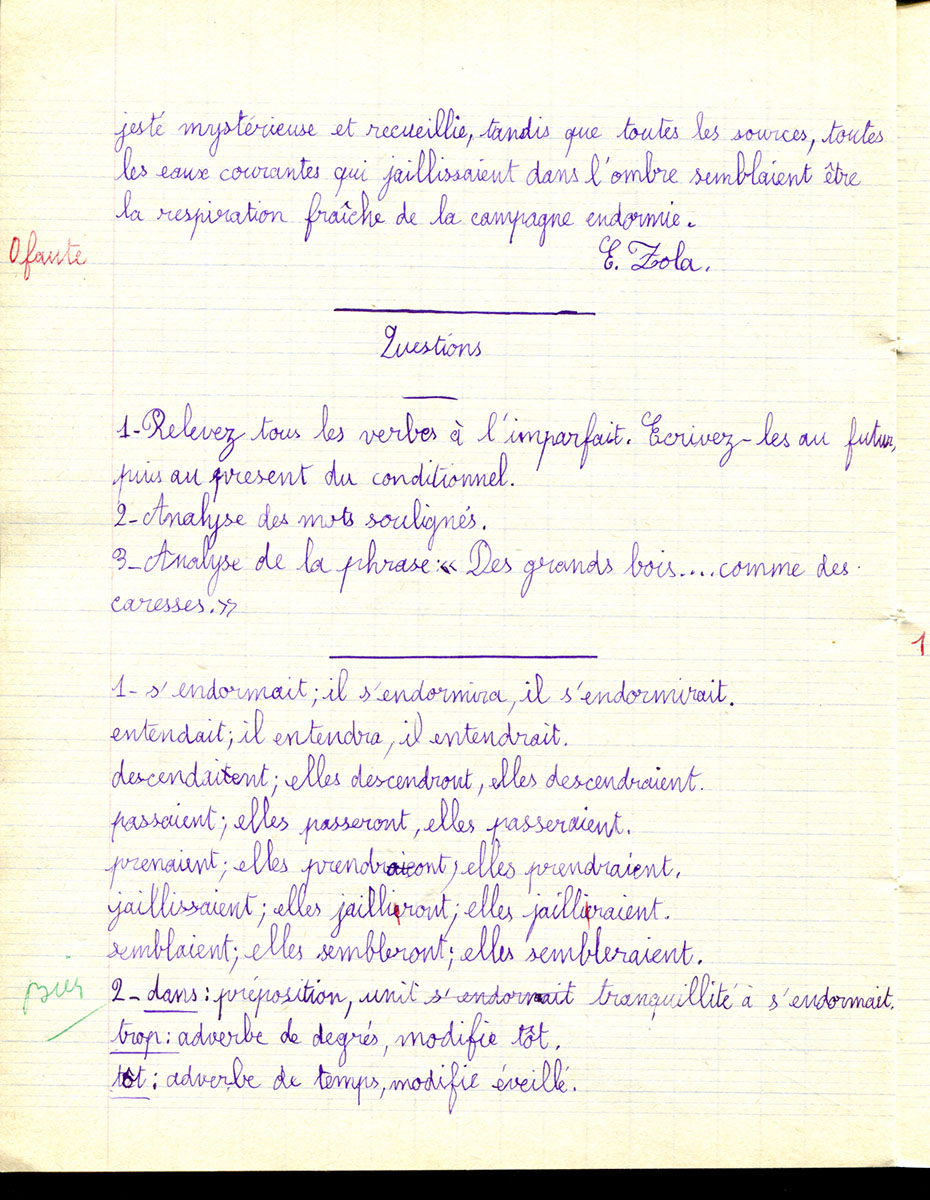 jesté mystérieuse et recueillie, tandis que toutes les sources, toutes
les eaux courantes qui jaillissaient dans l'ombre semblaient être
la respiration fraîche de la campagne endormie.
0 faute
E. Zola.
Questions
1-Relevez tous les verbes à l'imparfait. Ecrivez-les au futur,
puis au présent du conditionnel.
2-Analyse des mots soulignés.
3-Analyse de la phrase: « Des grands bois....comme des
caresses.»
1
1- s'endormait; il s'endormira, il s'endormirait.
entendait; il entendra, il entendrait.
descendaient; elles descendront, elles descendraient.
passaient; elles passeront, elles passeraient.
prenaient; elles prendront, elles prendraient.
jaillissaient; elles jailliront; elles jailliraient.
semblaient; elles sembleront; elles sembleraient.
2- dans: préposition, unit s'endormait tranquillité à s'endormait.
trop: adverbe de degrés, modifie tôt.
tôt: adverbe de temps, modifie éveillé.